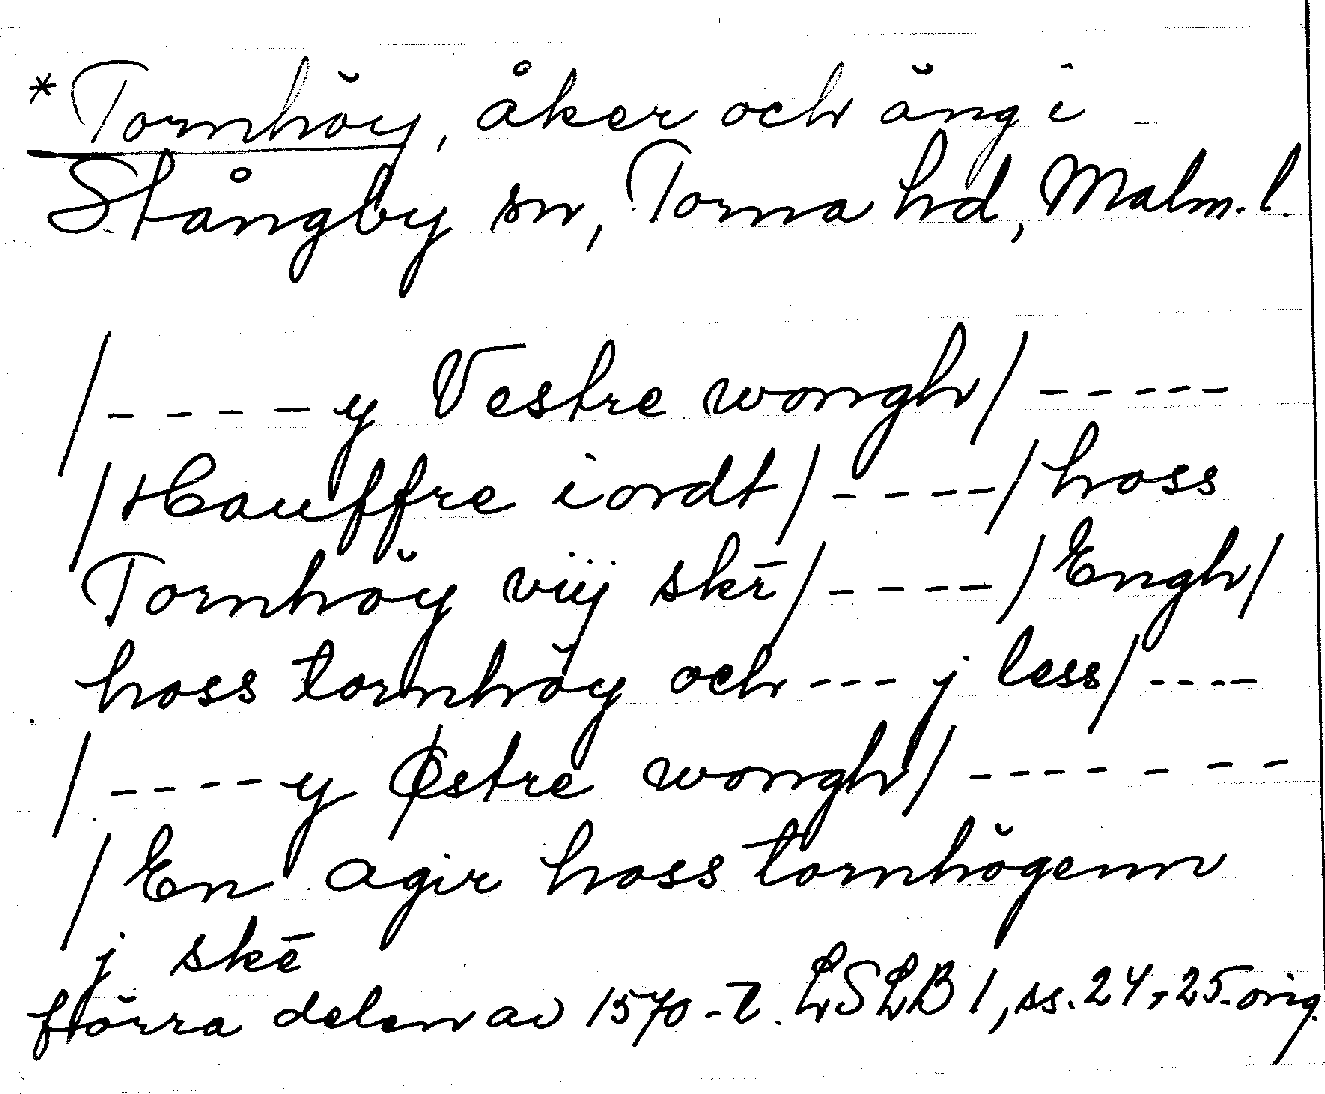 *Tornhöy, åker och äng i
Stångby sn, Torna hd, Malm. l.
/-----y Vestre wongh/-----
/Hauffre iordt/-----/hoss
Tornhöy viij skē/-----/Engh/
hoss tornhöy och --- j less/----
/----y Østre wongh/-------
/En agir hoss tornhögenn
j skē
förra delen av 1570-t. LSLB 1, ss. 24, 25. orig.